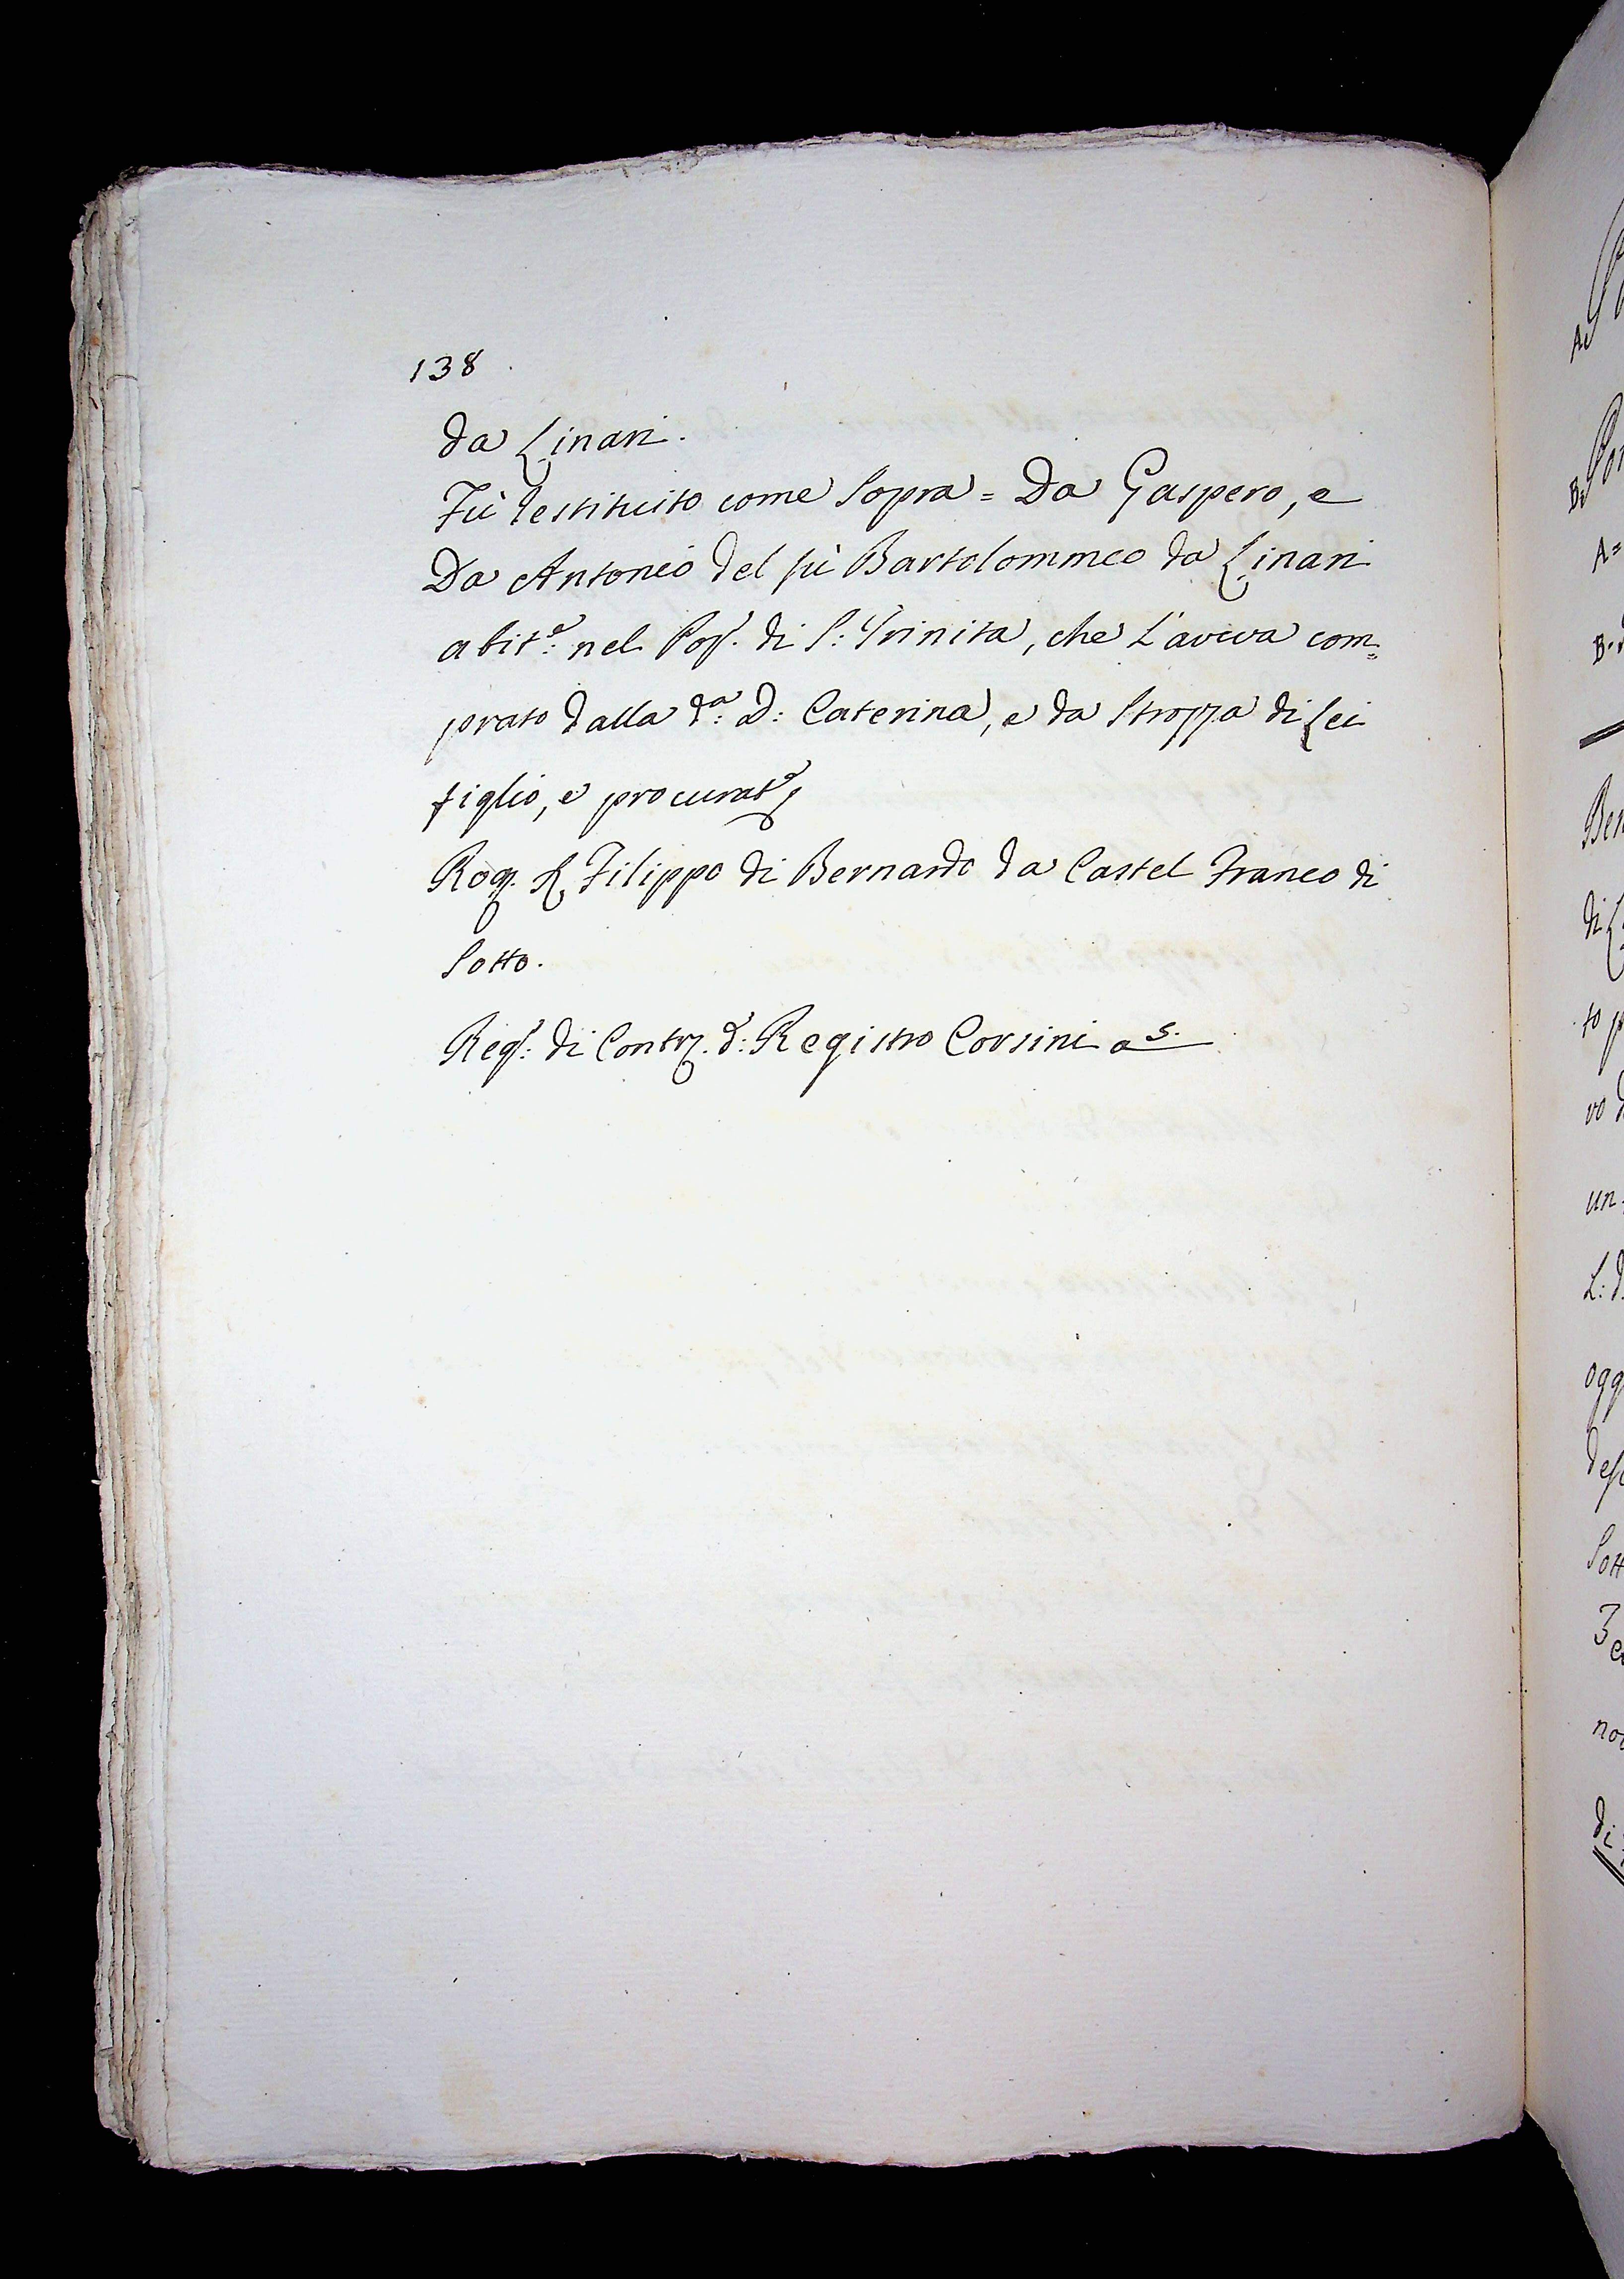 138
da Linari.
Fù restituito come sopra = Da Gaspero, e
Da Antonio del fù Bartolommeo da Linari
abit.e nel Pop.o di S: Trinita, che l'aveva com=
prato dalla d.a D: Caterina, e da Strozza di Lei
figlio, e procurat.e
Rog. S. Filippo di Bernardo da Castel Franco di
Sotto.
Reg.o: di Contr. d.o: Registro Corsini a 5.
A=